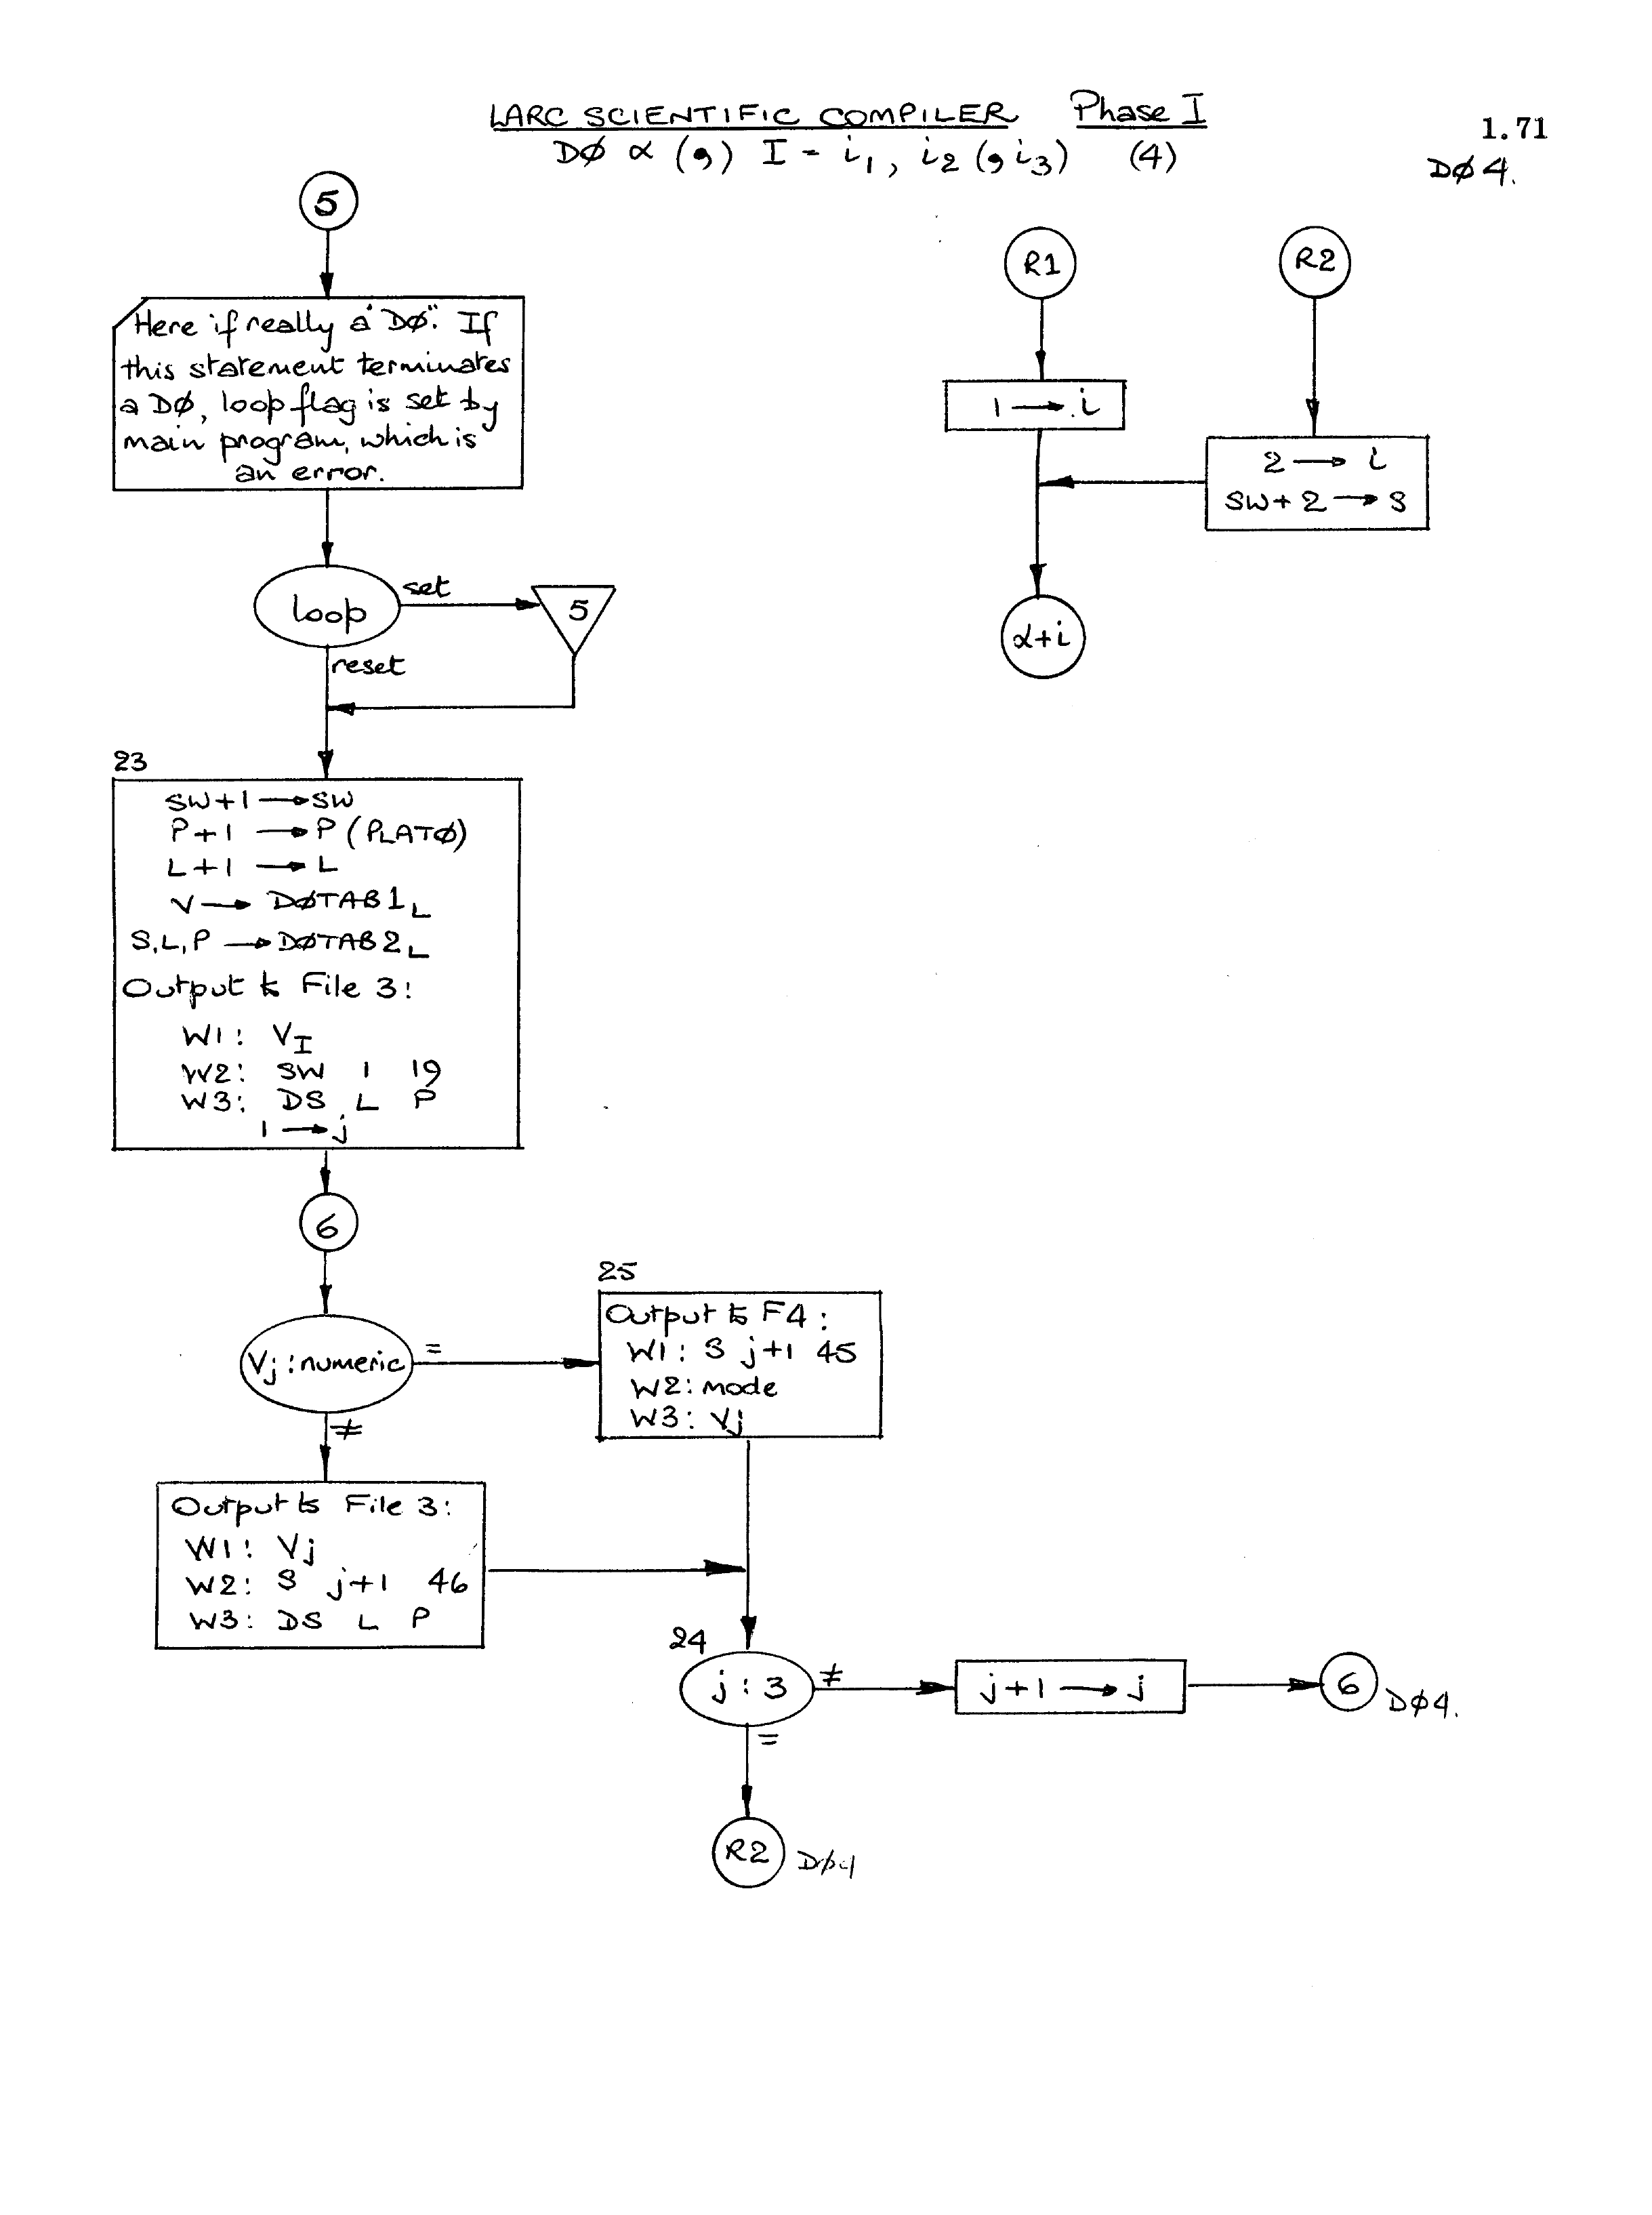 LARC SCIENTIFIC COMPILER Phase I
DØ α (,) I = i₁, i₂ (, i₃) (4)
1.71
DØ 4.
5
Here if really a "DØ". If
this statement terminates
a DØ, loop flag is set by
main program, which is
an error.
loop
set
5
reset
23
SW+1 → SW
P+1 → P (PLATØ)
L+1 → L
V → DØTAB1L
S,L,P → DØTAB2L
Output to File 3:
W1: VI
W2: SW 1 19
W3: DS L P
1 → j
6
Vj : numeric
=
≠
25
Output to F4:
W1: S j+1 45
W2: mode
W3: Vj
Output to File 3:
W1: Vj
W2: S j+1 46
W3: DS L P
24
j : 3
≠
j+1 → j
6
DØ4.
=
R2
DØ4
R1
1 → i
R2
2 → i
SW+2 → S
α+i